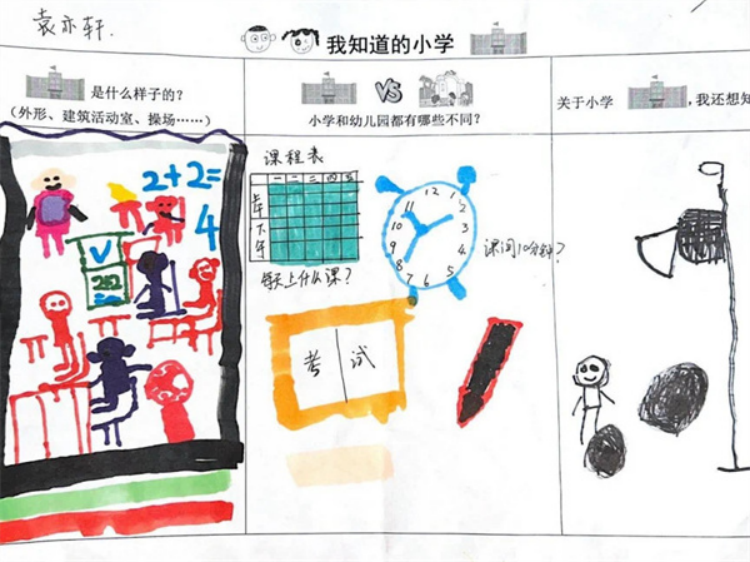 袁亦轩.
我知道的小学
是什么样子的?
(外形、建筑活动室、操场……)
VS
小学和幼儿园都有哪些不同?
关于小学
,我还想知
2+2=
4
课程表
一 二 三 四 五
上午
下午
每天上什么课?
12
1
2
3
4
5
6
7
8
9
10
11
课间10分钟?
考试